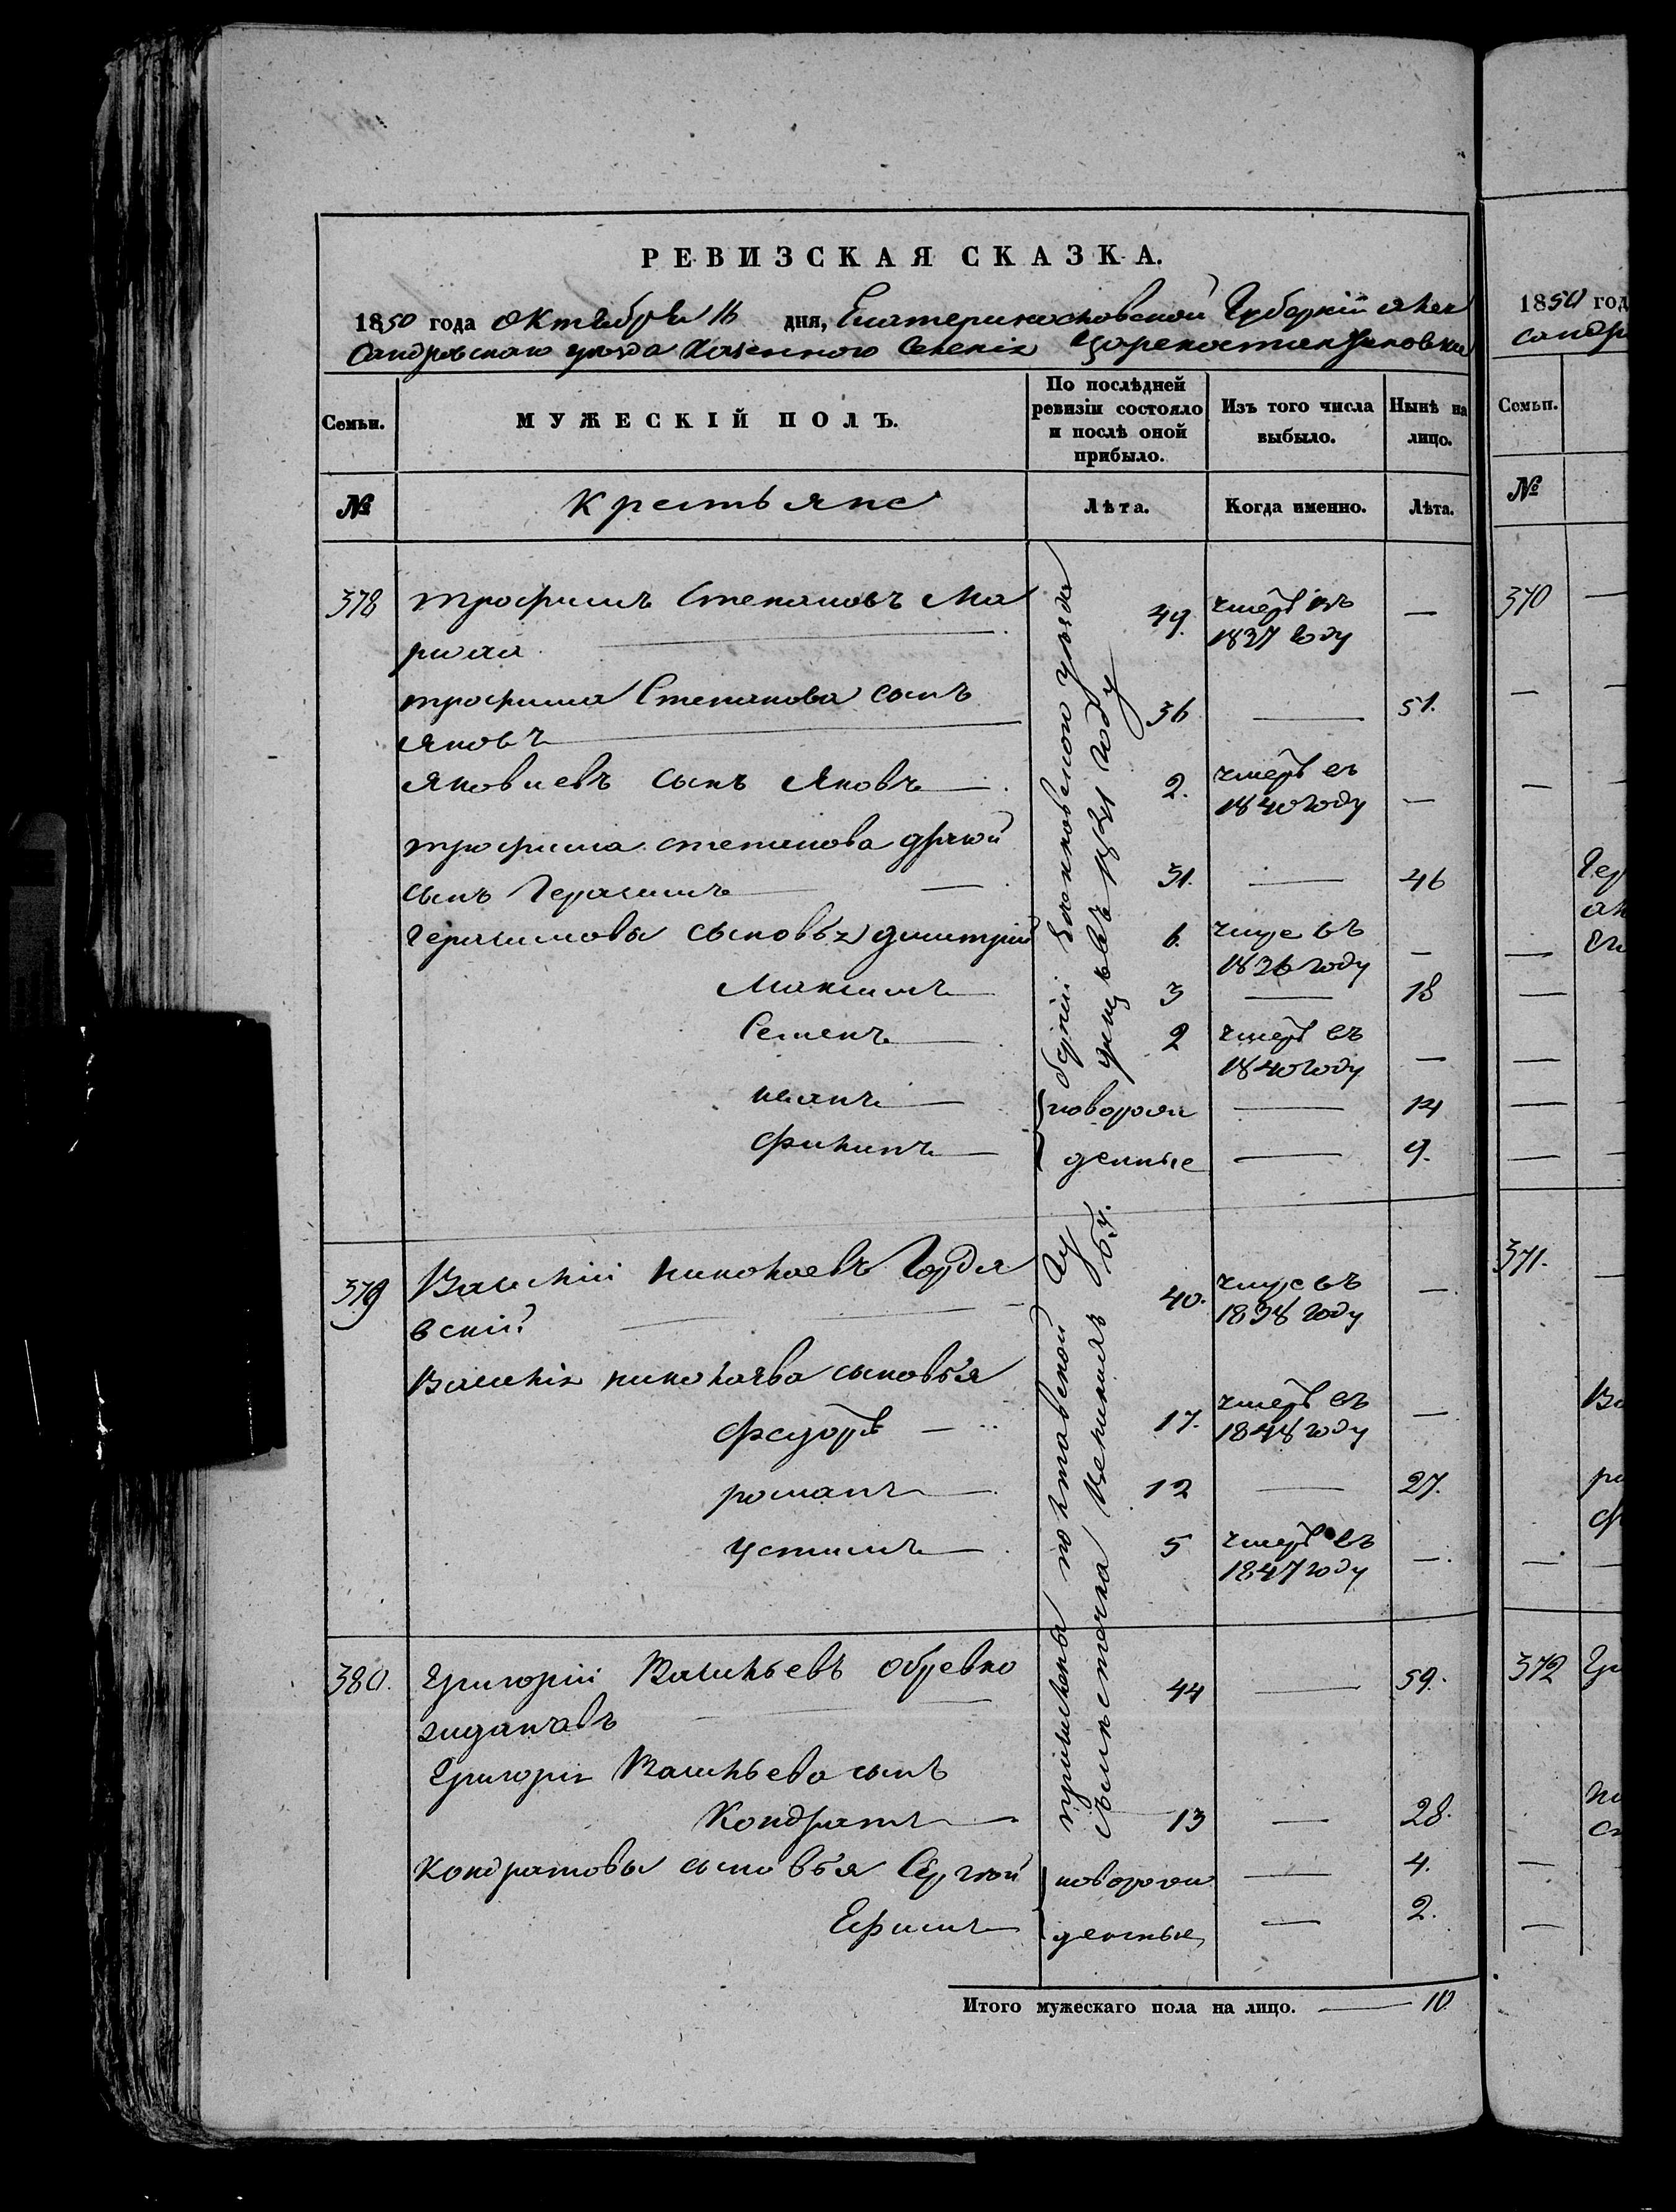 РЕВИЗСКАЯ СКАЗКА.
1850 года Октября 16 дня, Екатеринославской Губерніи Алек
сандровскаго уезда Казенного Селенія Цареконстантиновки
Семьи.
МУЖЕСКІЙ ПОЛЪ.
По послѣдней ревизіи состояло и послѣ оной прибыло.
Изъ того числа выбыло.
Нынѣ на лицо.
№ Крестьяне Лѣта. Когда именно. Лѣта.
378 Трофимъ Степановъ Ма 49. умеръ въ —
1837 году
Трофима Степанова сынъ 36 — 51.
Яковъ
Яковлевъ сынъ Яковъ 2. умеръ въ —
1840 году
Трофима Степанова другой
сынъ Герасимъ 31. — 46
Герасимовы сыновья Дмитрій 6. умре въ —
1836 году
Максимъ 3 — 18
Семенъ 2 умеръ въ —
1840 году
Иванъ новорож — 14
Филипъ денные — 9.
379 Василій Николаевъ Гордя 40. умре въ —
вскій 1838 году
Василія Николаева сыновья
Федоръ 17. умеръ въ —
1848 году
Романъ 12 — 27.
Устимъ 5 умеръ въ —
1847 году
380. Григорій Васильевъ 44 — 59.
Григорія Васильева сынъ
Кондратъ 13 — 28.
Кондратовы сыновья Сергѣй новорож — 4.
Ефимъ денные — 2.
причислены полтавской Гу берніи Зеньковского уезда
Итого мужескаго пола на лицо. — 10
1850 год
сандр
Семьи.
№
370
371.
372